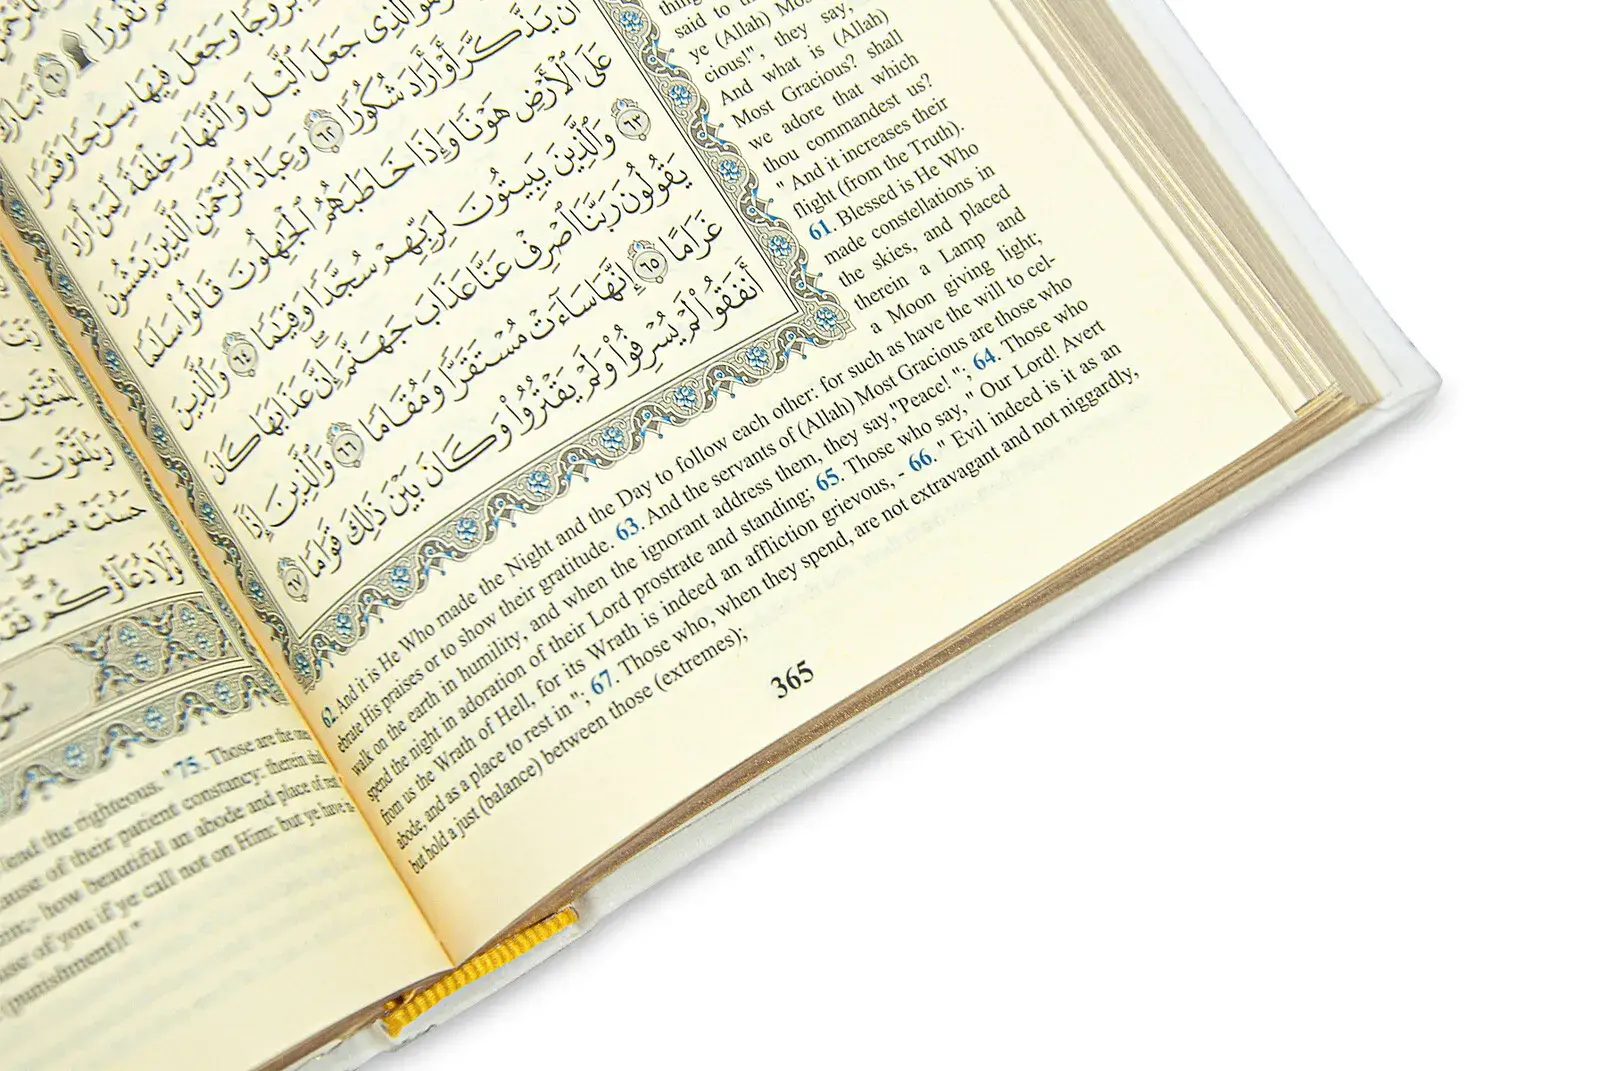 نُفُورًا ۩ ٦٠ تَبَارَكَ
بُرُوجًا وَجَعَلَ فِيهَا سِرَٰجًا وَقَمَرًا
وَهُوَ ٱلَّذِى جَعَلَ ٱلَّيْلَ وَٱلنَّهَارَ خِلْفَةً لِّمَنْ أَرَادَ
أَن يَذَّكَّرَ أَوْ أَرَادَ شُكُورًا ٦٢ وَعِبَادُ ٱلرَّحْمَٰنِ ٱلَّذِينَ يَمْشُونَ
عَلَى ٱلْأَرْضِ هَوْنًا وَإِذَا خَاطَبَهُمُ ٱلْجَٰهِلُونَ قَالُوا۟ سَلَٰمًا
٦٣ وَٱلَّذِينَ يَبِيتُونَ لِرَبِّهِمْ سُجَّدًا وَقِيَٰمًا ٦٤ وَٱلَّذِينَ
يَقُولُونَ رَبَّنَا ٱصْرِفْ عَنَّا عَذَابَ جَهَنَّمَ إِنَّ عَذَابَهَا كَانَ
غَرَامًا ٦٥ إِنَّهَا سَآءَتْ مُسْتَقَرًّا وَمُقَامًا ٦٦ وَٱلَّذِينَ إِذَآ
أَنفَقُوا۟ لَمْ يُسْرِفُوا۟ وَلَمْ يَقْتُرُوا۟ وَكَانَ بَيْنَ ذَٰلِكَ قَوَامًا ٦٧
said to
ye (Allah) Mos
cious!", they say,
And what is (Allah)
Most Gracious? shall
we adore that which
thou commandest us?
" And it increases their
flight (from the Truth).
61. Blessed is He Who
made constellations in
the skies, and placed
therein a Lamp and
a Moon giving light;
62. And it is He Who made the Night and the Day to follow each other: for such as have the will to cel-
ebrate His praises or to show their gratitude. 63. And the servants of (Allah) Most Gracious are those who
walk on the earth in humility, and when the ignorant address them, they say,"Peace! "; 64. Those who
spend the night in adoration of their Lord prostrate and standing; 65. Those who say, " Our Lord! Avert
from us the Wrath of Hell, for its Wrath is indeed an affliction grievous, - 66. " Evil indeed is it as an
abode, and as a place to rest in "; 67. Those who, when they spend, are not extravagant and not niggardly,
but hold a just (balance) between those (extremes);
365
حَسُنَتْ مُسْتَقَرًّا
لَوْلَا دُعَآؤُكُمْ فَقَدْ
lend the righteous. " 75. Those are the
ause of their patient constancy: therein
how beautiful an abode and place of
of you if ye call not on Him: but ye have
(punishment)! "